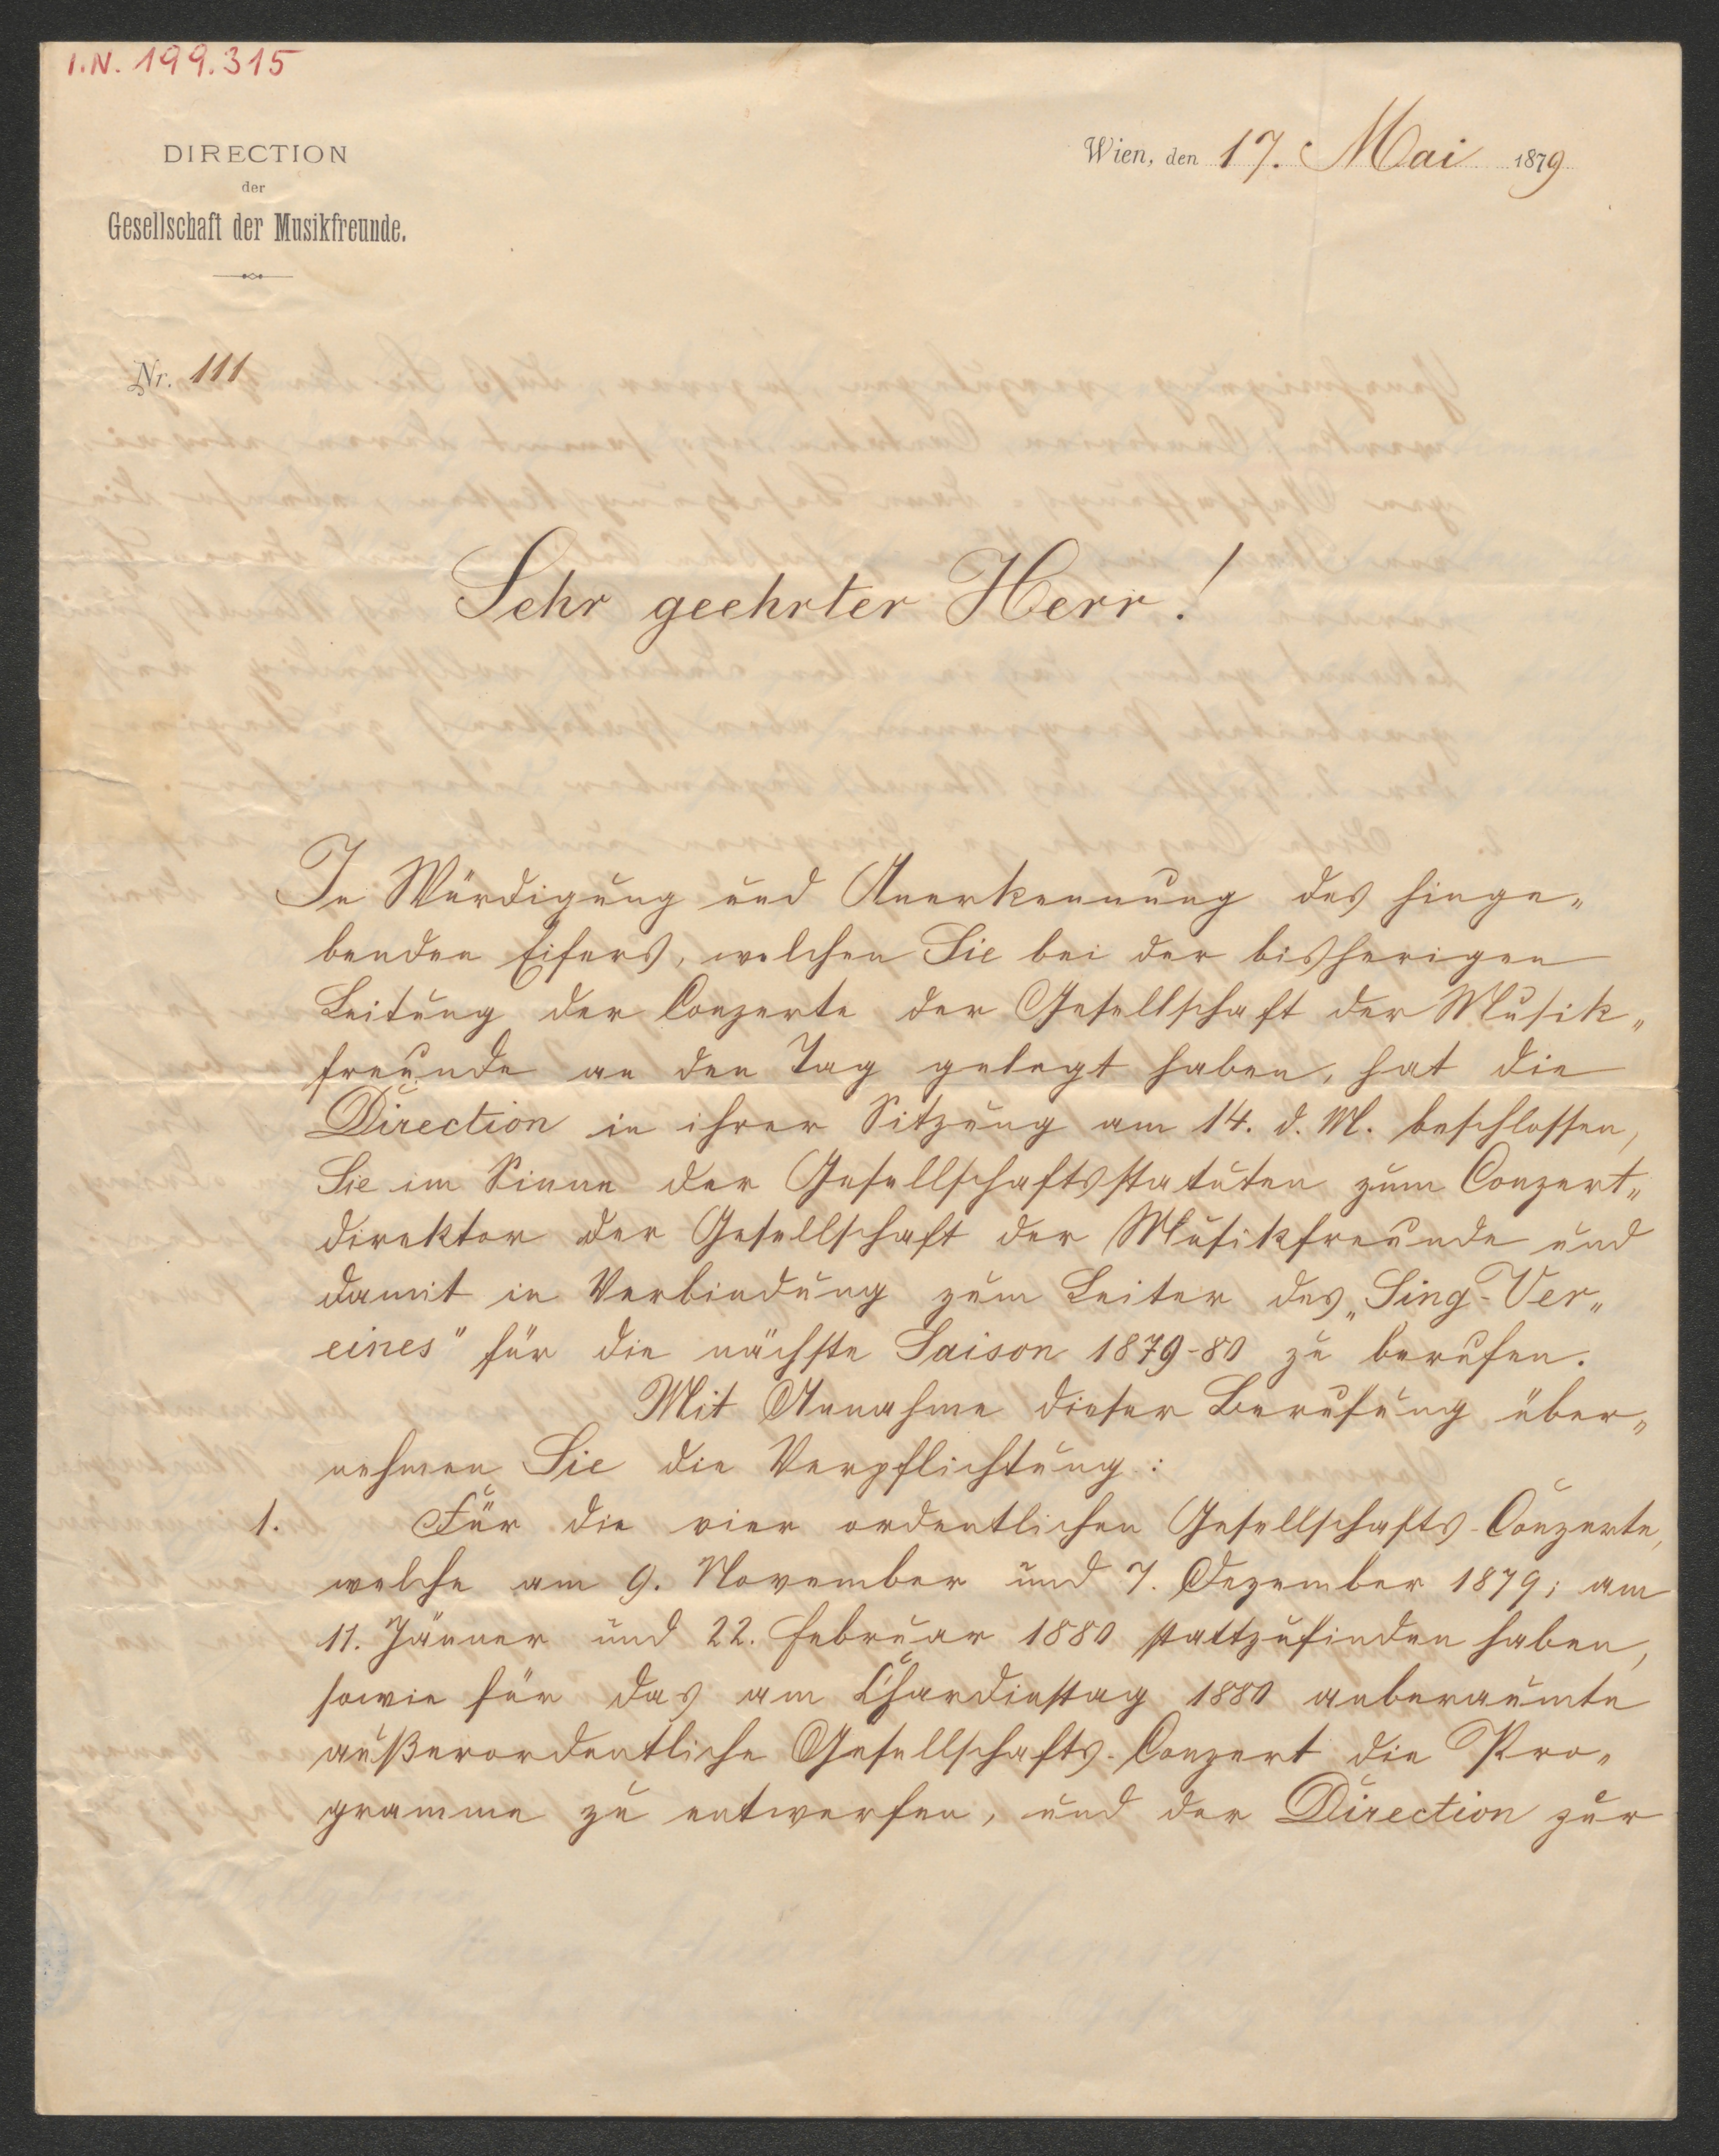 I.N. 199.315
DIRECTION
der
Gesellschaft der Musikfreunde.
Wien, den 17. Mai 1879
Nr. 111
Sehr geehrter Herr!
In Würdigung und Anerkennung des hinge„
benden Eifers, welchen Sie bei der bisherigen
Leitung der Conzerte der Gesellschaft der Musik„
freunde an den Tag gelegt haben, hat die
Direction in ihrer Sitzung am 14. d. M. beschlossen,
Sie im Sinne der Gesellschaftsstatuten zum Conzert„
direktor der Gesellschaft der Musikfreunde und
damit in Verbindung zum Leiter des „Sing-Ver„
eines" für die nächste Saison 1879-80 zu berufen.
Mit Annahme dieser Berufung über„
nehmen Sie die Verpflichtung:
1. Für die vier ordentlichen Gesellschafts-Conzerte,
welche am 9. November und 7. Dezember 1879; am
11. Jänner und 22. Februar 1880 stattzufinden haben,
sowie für das am Chardinstag 1880 anberaumte
außerordentliche Gesellschafts-Conzert die Pro„
gramme zu entwerfen, und der Direction zur